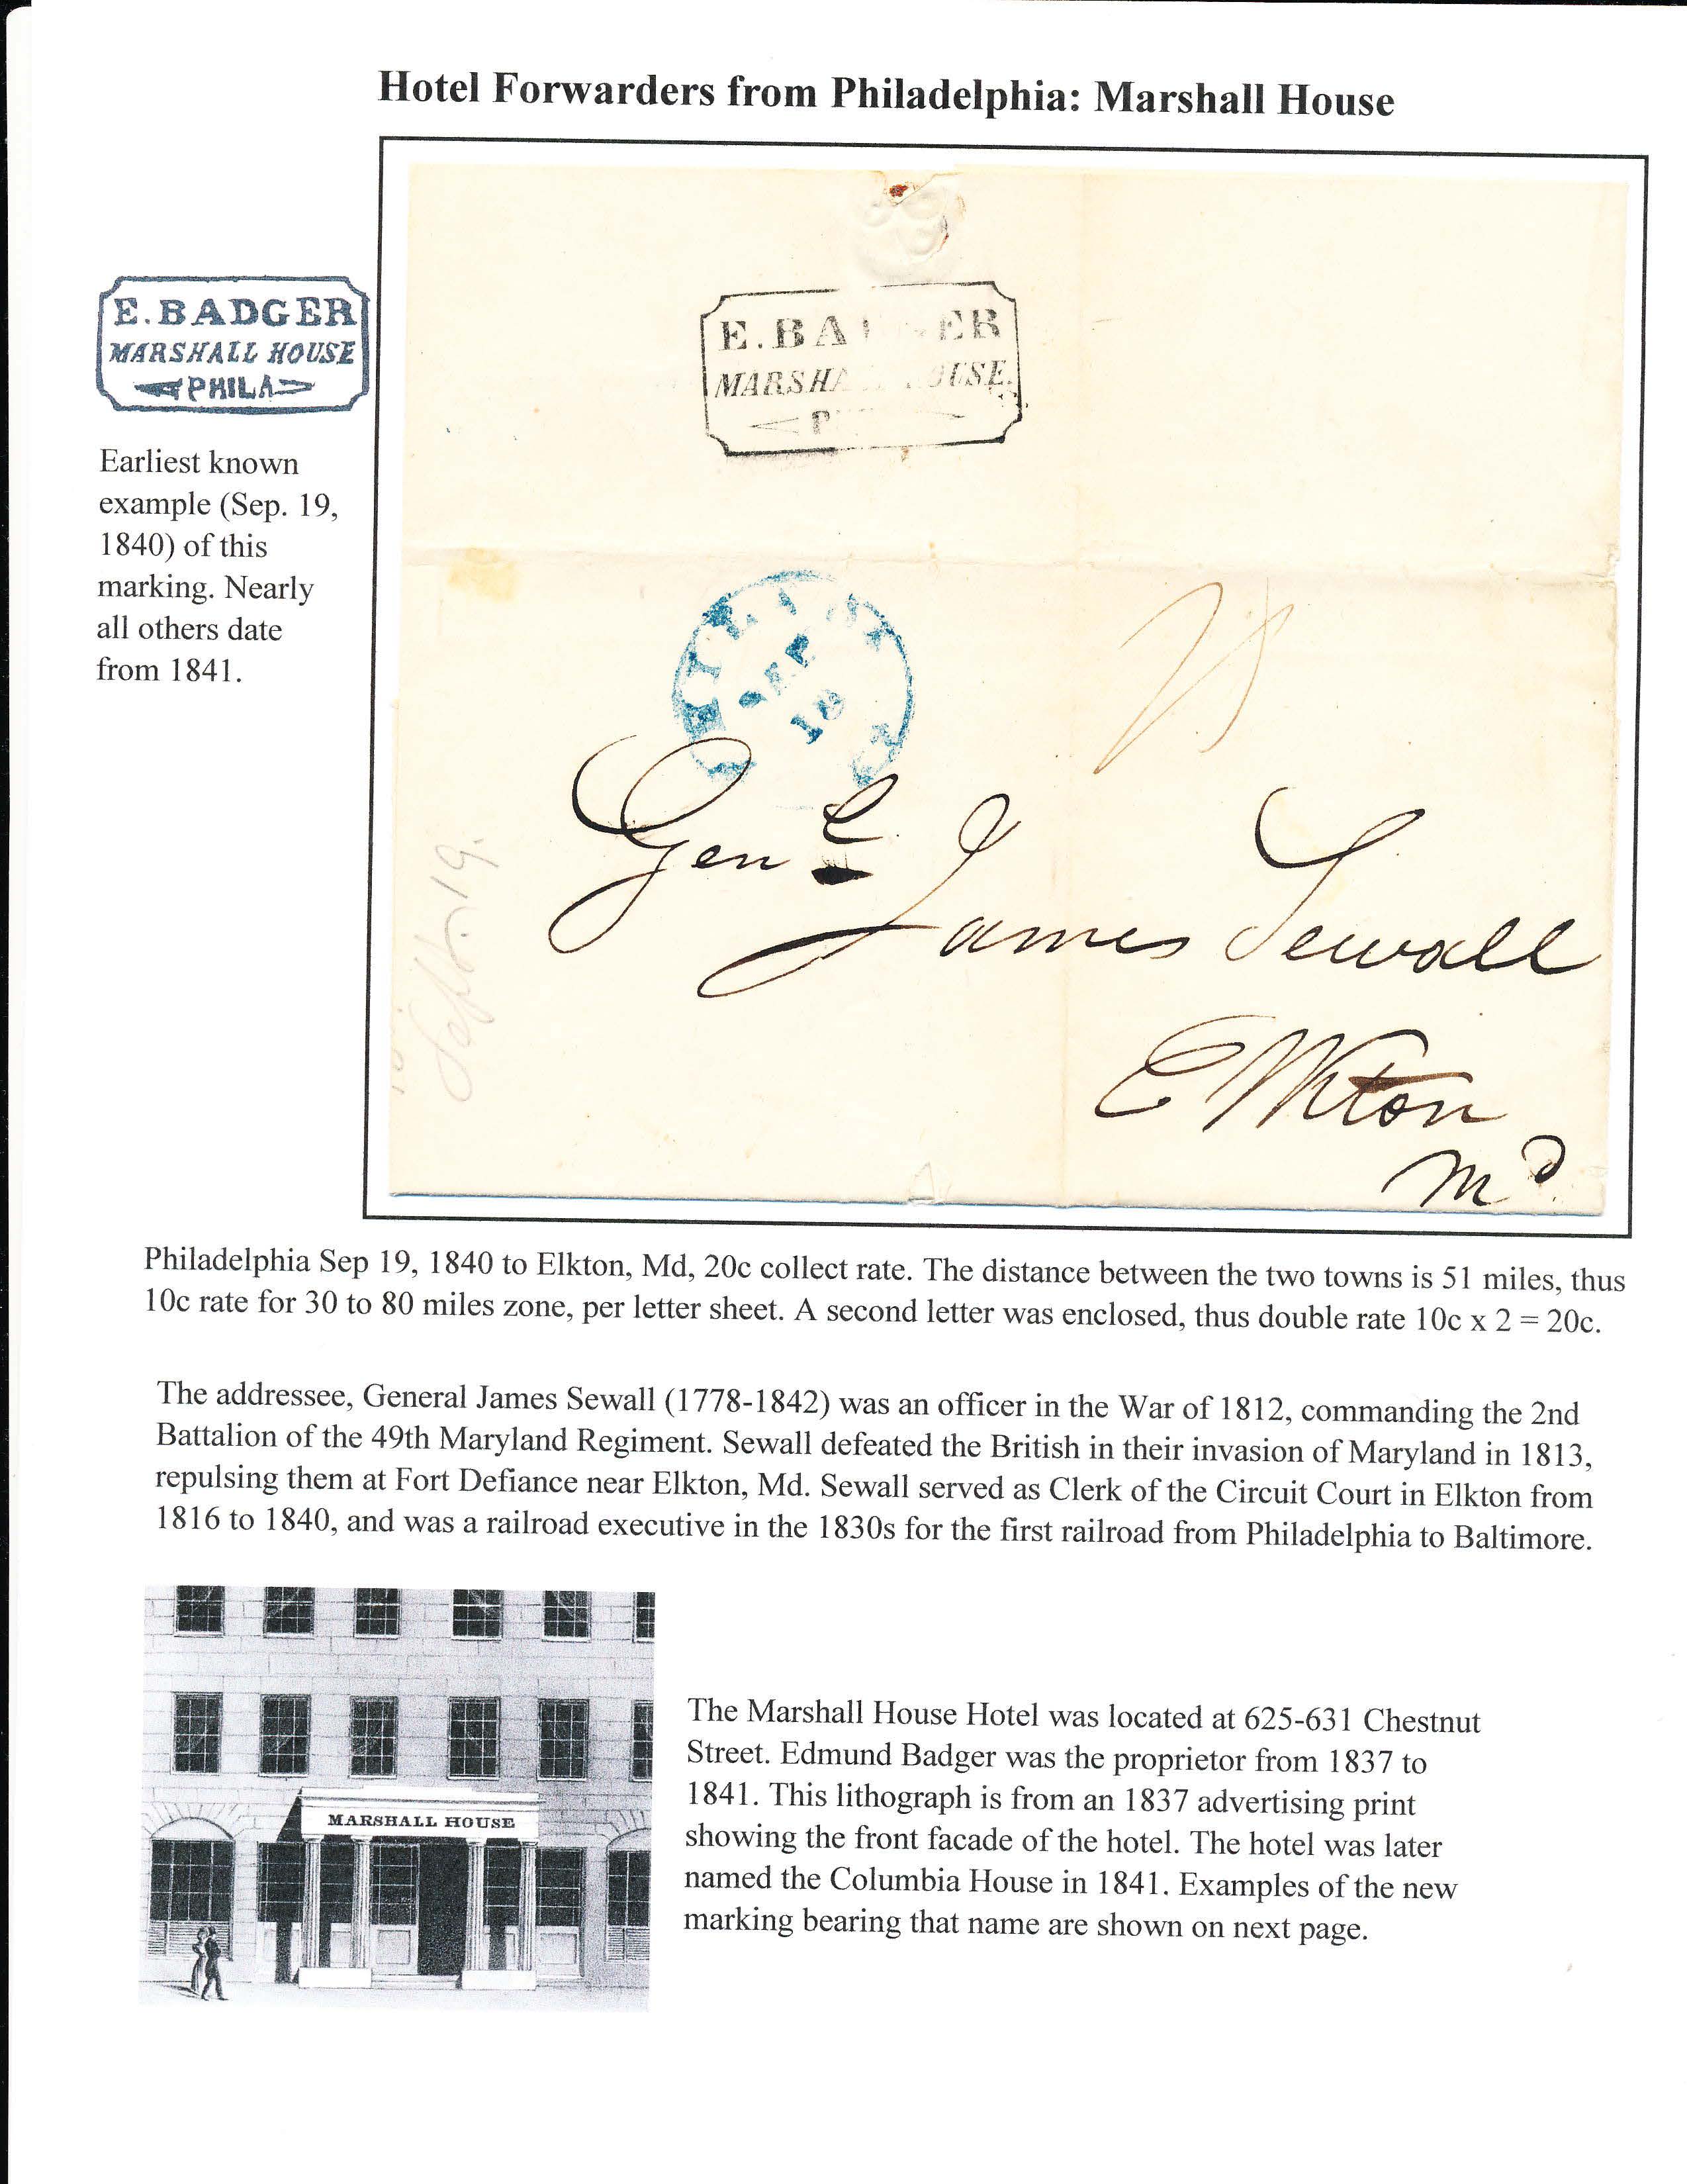 Hotel Forwarders from Philadelphia: Marshall House
E. BADGER
MARSHALL HOUSE
PHILA
Earliest known
example (Sep. 19,
1840) of this
marking. Nearly
all others date
from 1841.
E. BA GER
MARSHA OUSE.
P
SEP
Genl. James Sewall
Elkton
Md.
Septr. 19.
Philadelphia Sep 19, 1840 to Elkton, Md, 20c collect rate. The distance between the two towns is 51 miles, thus
10c rate for 30 to 80 miles zone, per letter sheet. A second letter was enclosed, thus double rate 10c x 2 = 20c.
The addressee, General James Sewall (1778-1842) was an officer in the War of 1812, commanding the 2nd
Battalion of the 49th Maryland Regiment. Sewall defeated the British in their invasion of Maryland in 1813,
repulsing them at Fort Defiance near Elkton, Md. Sewall served as Clerk of the Circuit Court in Elkton from
1816 to 1840, and was a railroad executive in the 1830s for the first railroad from Philadelphia to Baltimore.
MARSHALL HOUSE
The Marshall House Hotel was located at 625-631 Chestnut
Street. Edmund Badger was the proprietor from 1837 to
1841. This lithograph is from an 1837 advertising print
showing the front facade of the hotel. The hotel was later
named the Columbia House in 1841. Examples of the new
marking bearing that name are shown on next page.